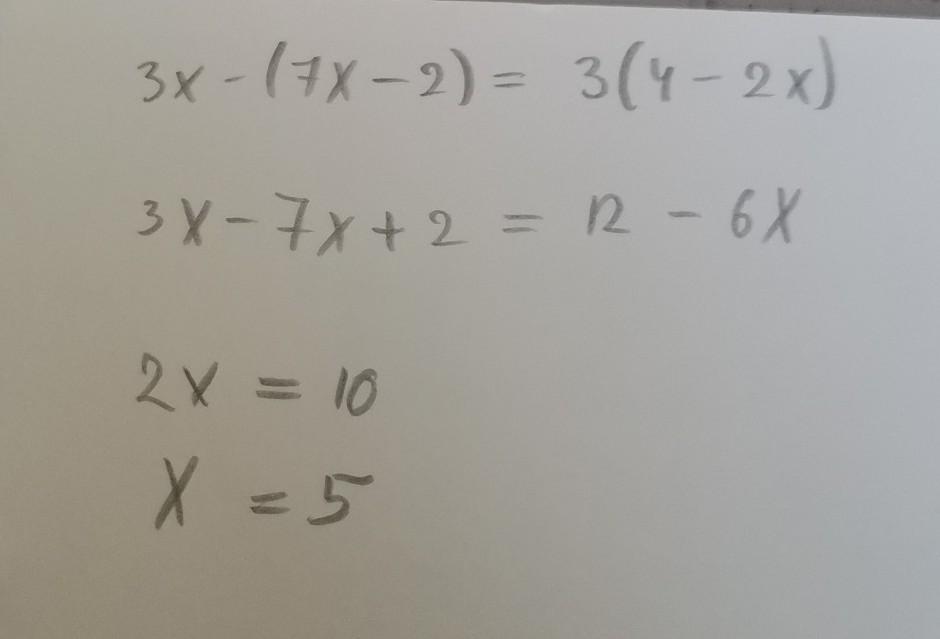 3x - (7x - 2) = 3(4 - 2x)
3x - 7x + 2 = 12 - 6x
2x = 10
x = 5